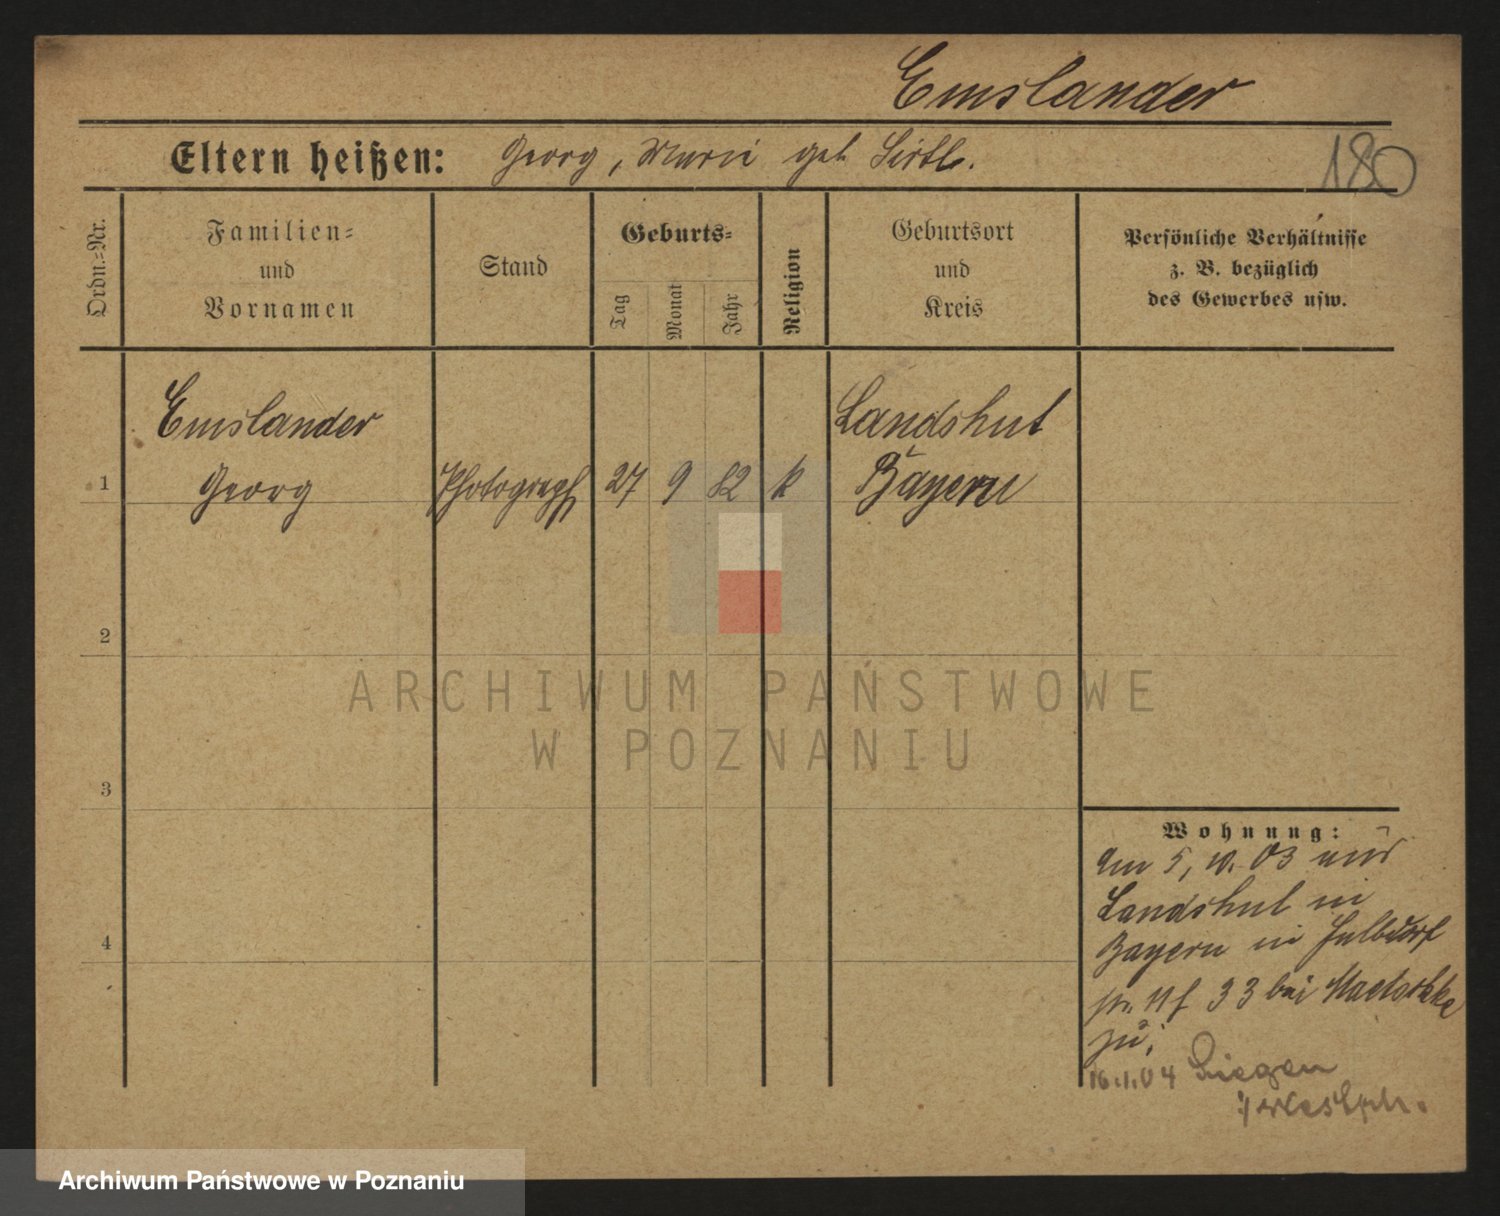 Emslander
Eltern heißen: Georg, Marie geb. Sirtl.
180
Ordn.=Nr.
Familien=
und
Vornamen
Stand
Geburts=
Tag
Monat
Jahr
Religion
Geburtsort
und
Kreis
Persönliche Verhältnisse
z. B. bezüglich
des Gewerbes usw.
Emslander
Landshut
1 Georg Photograph 27 9 82 k Bayern
2
ARCHIWUM PAŃSTWOWE
W POZNANIU
3
Wohnung:
Am 5, 10. 03 aus
Landshut in
4
Bayern in
33 bei
zu.
16.1.04 Siegen
i/Westph.
Archiwum Państwowe w Poznaniu